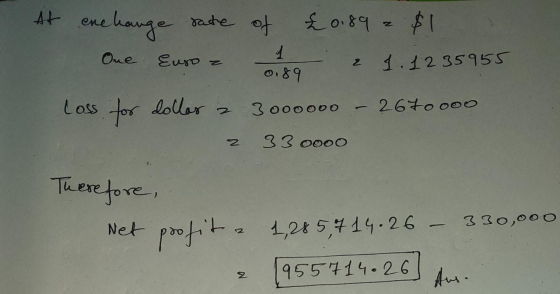 At enchange rate of £0.89 = $1
One Euro = 1/0.89 = 1.1235955
Loss for dollar = 3000000 - 2670000
= 330000
Therefore,
Net profit = 1,285,714.26 - 330,000
= 955714.26 Ans.